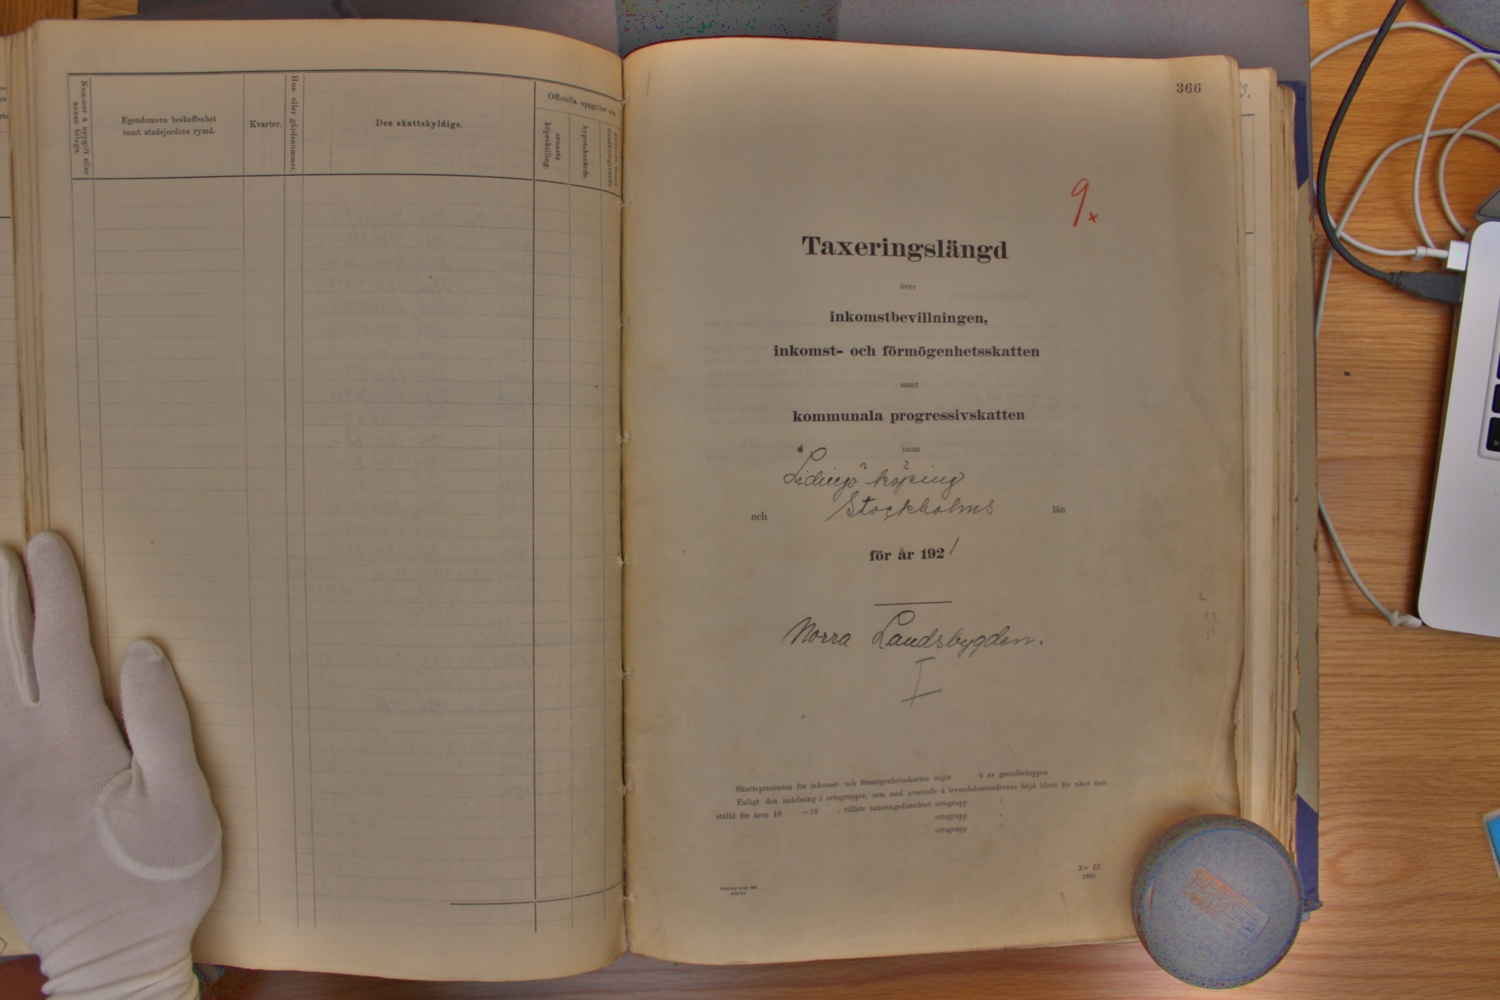 Nummer å uppgift eller annan bilaga.
Egendomens beskaffenhet
samt stadsjordens rymd.
Kvarter.
Hus- eller gårdsnummer.
Den skattskyldige.
Officiella uppgifter om
senaste
köpeskilling.
hypoteksvärde.
366
9x
Taxeringslängd
över
inkomstbevillningen,
inkomst- och förmögenhetsskatten
samt
kommunala progressivskatten
inom
Lidingö köping
och Stockholms län
för år 1921
Norra Landsbygden.
I
Skatteprocenten för inkomst- och förmögenhetsskatten utgör % av grundbeloppen.
Enligt den indelning i ortsgrupper, som med avseende å levnadskostnadernas höjd blivit för riket fast-
ställd för åren 19 —19 , tillhör taxeringsdistriktet ortsgrupp
ortsgrupp
ortsgrupp
Nr 22.